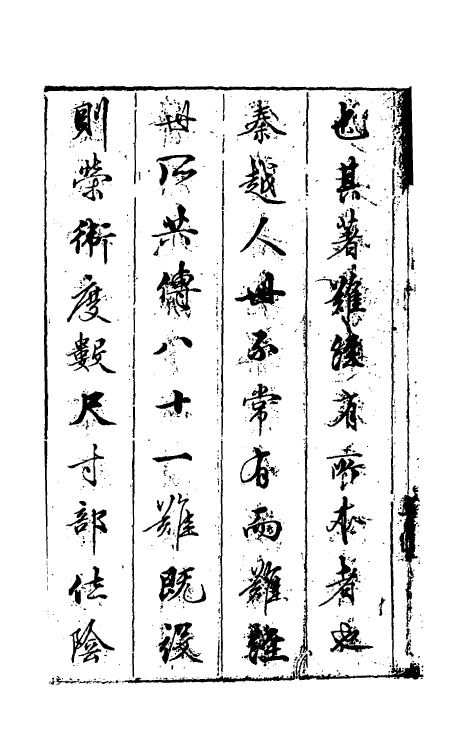 也其著難經有所本者也
秦越人毋不常有而難經
毋所共傳八十一難既設
則榮術度數尺寸部位陰